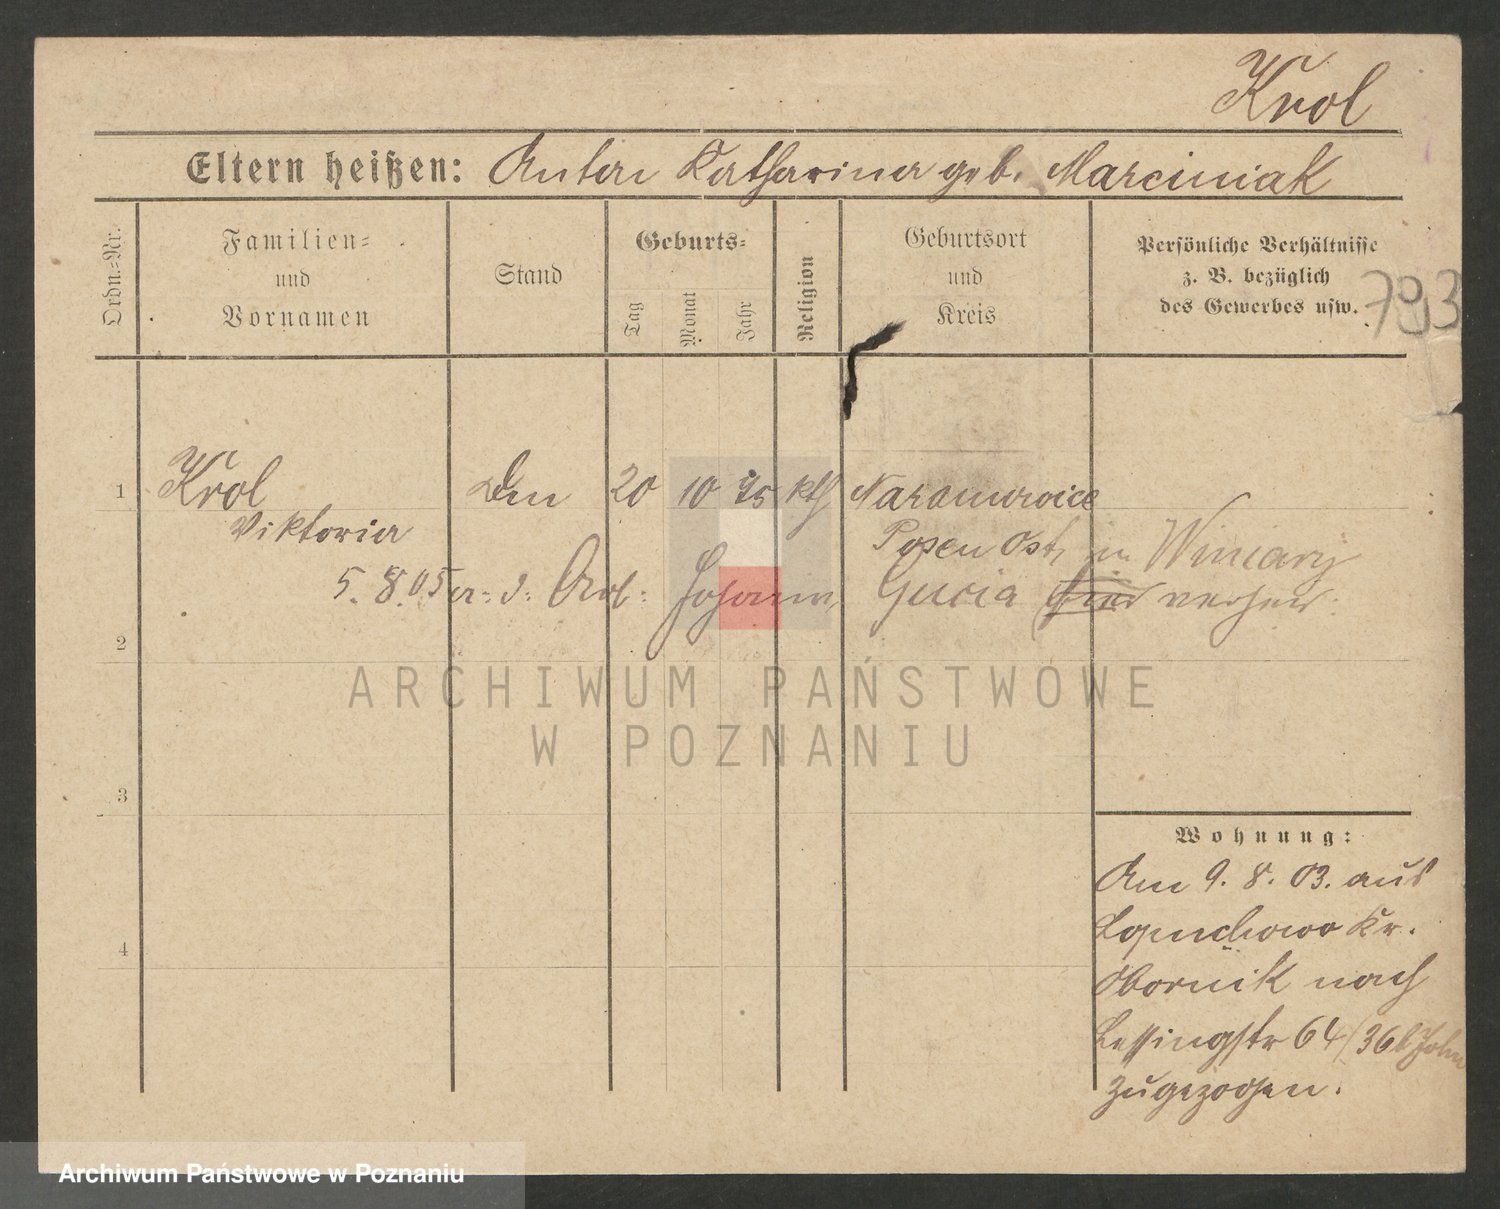 Krol
Eltern heißen: Anton Katharina geb. Marciniak
Ordn.-Nr.
Familien-
und
Vornamen
Stand
Geburts-
Tag
Monat
Jahr
Religion
Geburtsort
und
Kreis
Persönliche Verhältnisse
z. B. bezüglich
des Gewerbes usw.
793
1
Krol
20 10 75 kth
Naramowice
Viktoria
Posen Ost, in Winiary
5. 8. 05 Arb. Johann
2
ARCHIWUM PAŃSTWOWE
W POZNANIU
3
Wohnung:
Am 9. 8. 03. aus
Lopuchowo Kr.
Obornik nach
4
Lessingstr 64
zugezogen.
Archiwum Państwowe w Poznaniu